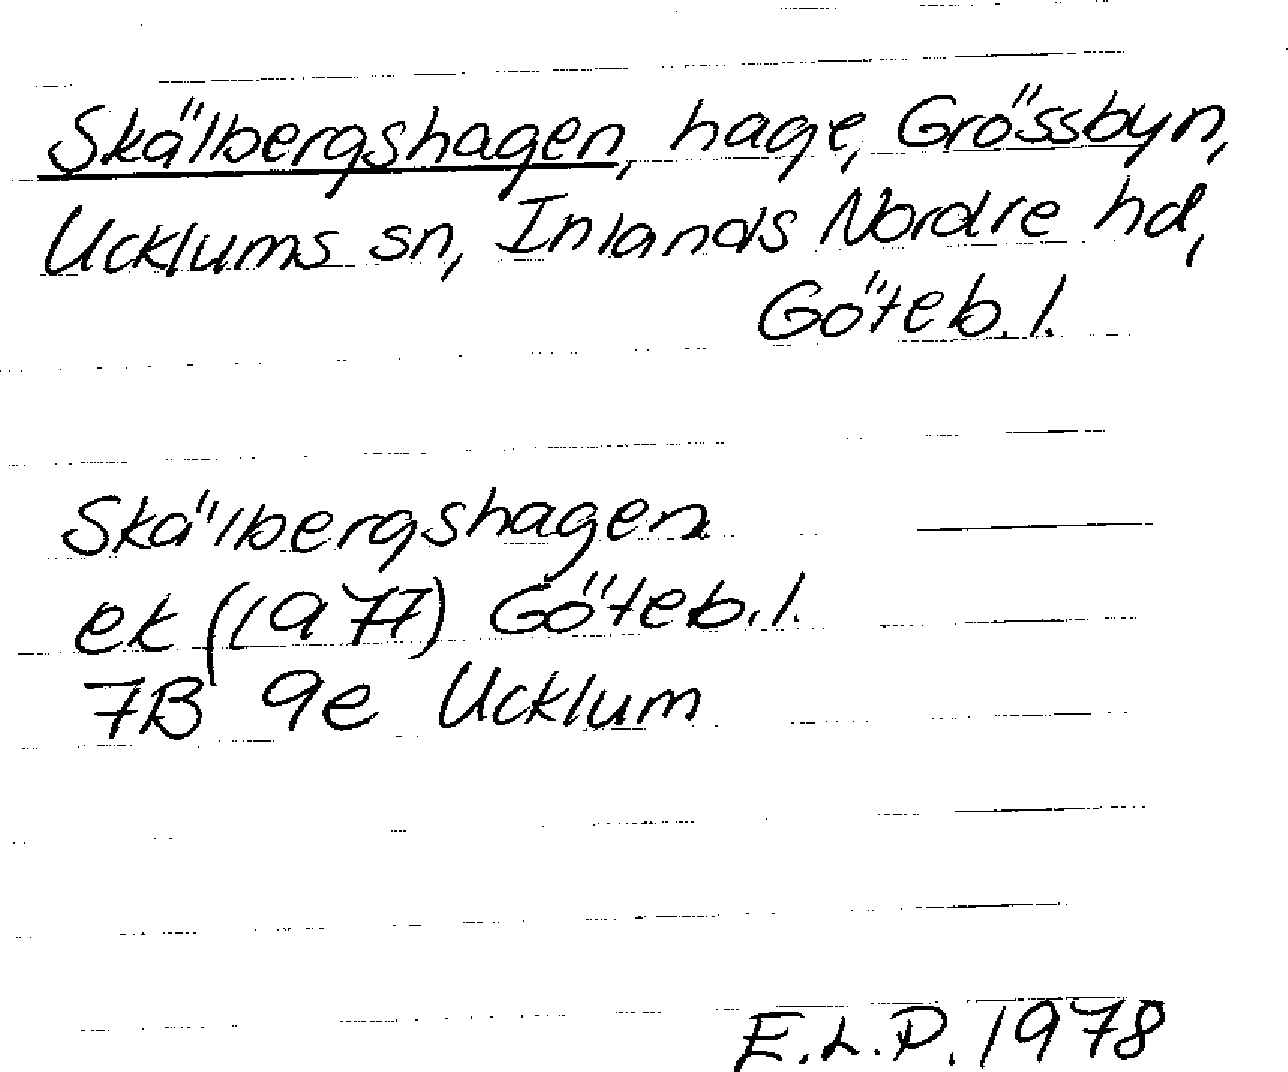 Skälbergshagen, hage, Grössbyn,
Ucklums sn, Inlands Nordre hd,
Göteb. l.
Skälbergshagen
ek (1977) Göteb. l.
7B 9e Ucklum
E.L.P. 1978